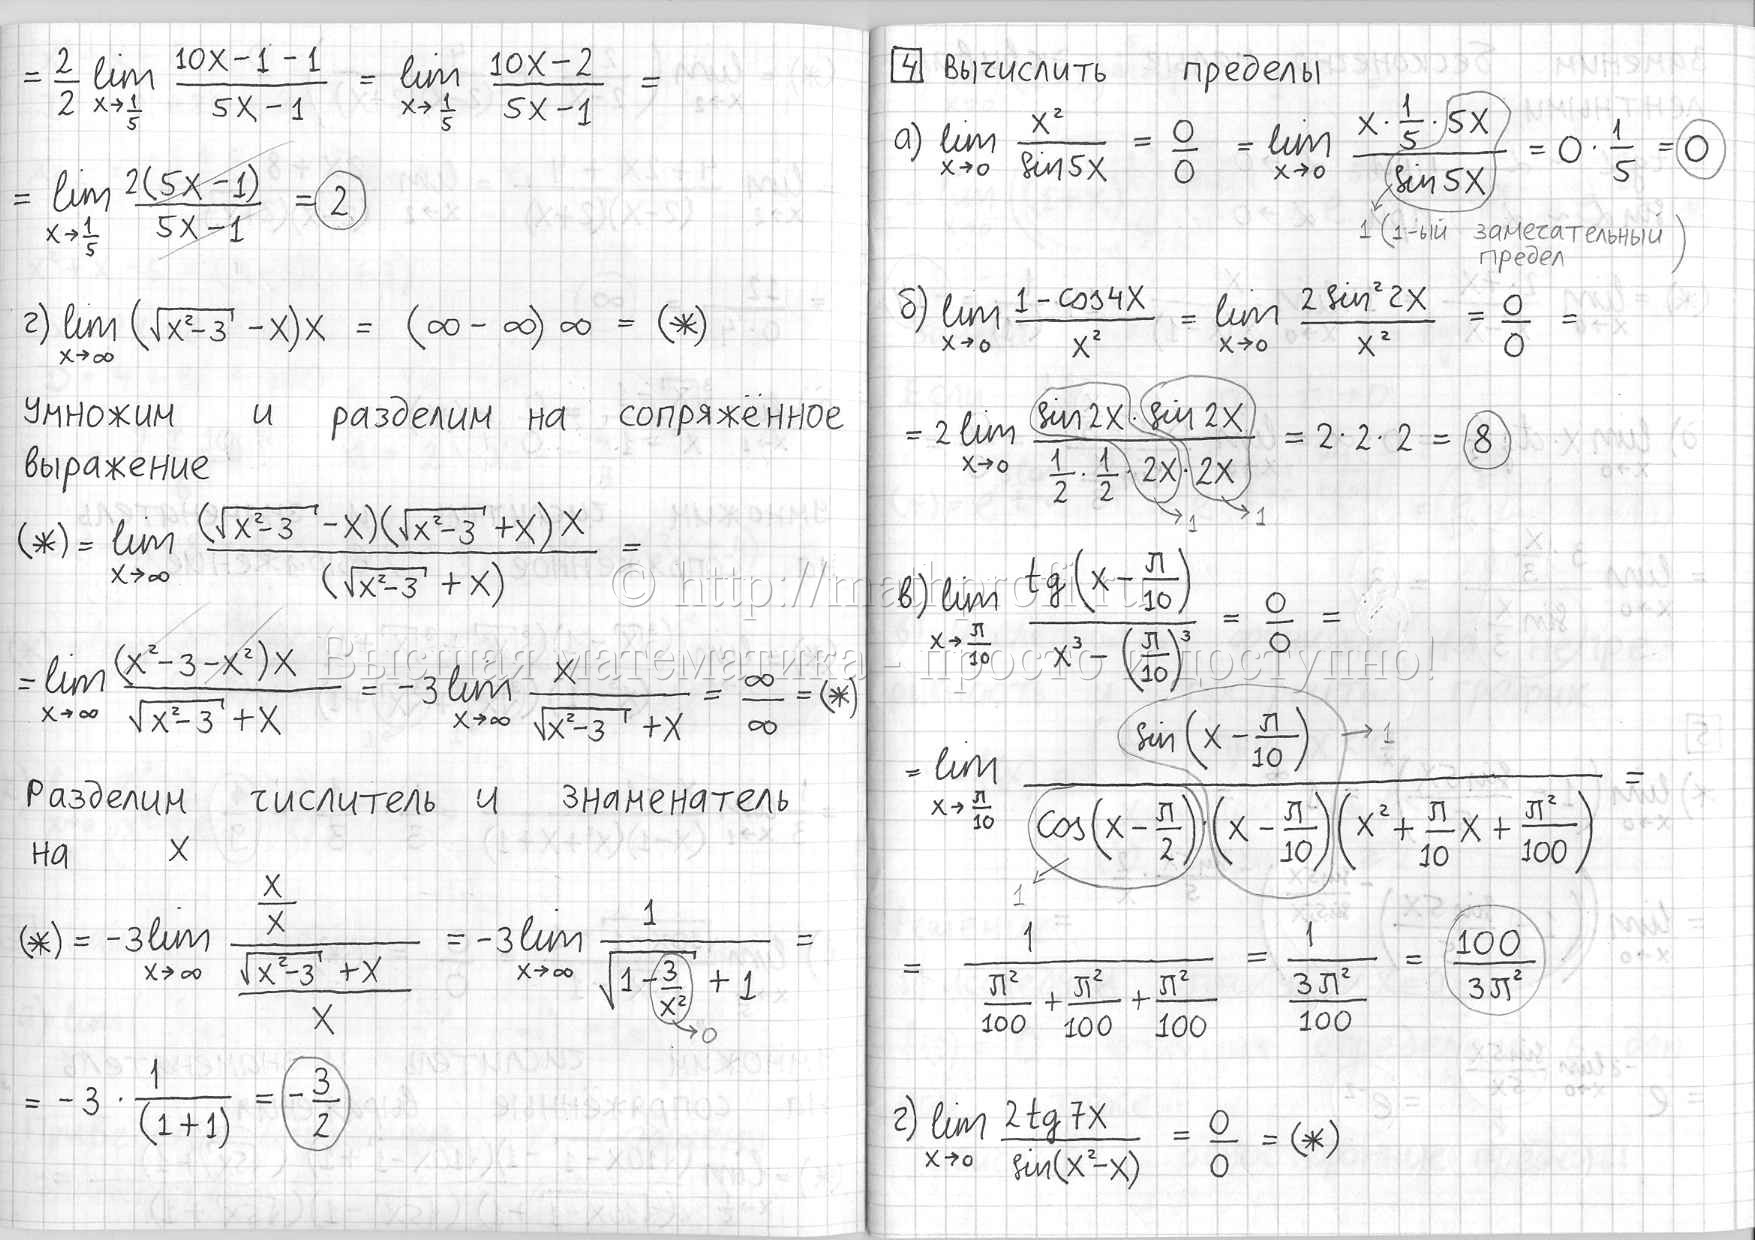 = 2/2 lim x→1/5 (10x-1-1)/(5x-1) = lim x→1/5 (10x-2)/(5x-1) =
= lim x→1/5 2(5x-1)/(5x-1) = 2
г) lim x→∞ (√(x²-3) - x)x = (∞ - ∞)∞ = (*)
Умножим и разделим на сопряжённое
выражение
(*) = lim x→∞ (√(x²-3) - x)(√(x²-3) + x)x / (√(x²-3) + x) =
= lim x→∞ (x²-3-x²)x / (√(x²-3) + x) = -3 lim x→∞ x / (√(x²-3) + x) = ∞/∞ = (*)
Разделим числитель и знаменатель
на x
(*) = -3 lim x→∞ (x/x) / ((√(x²-3) + x)/x) = -3 lim x→∞ 1 / (√(1 - 3/x²) + 1) =
→0
= -3 · 1/(1+1) = -3/2
4 Вычислить пределы
а) lim x→0 x²/sin5x = 0/0 = lim x→0 (x · 1/5 · 5x)/sin5x = 0 · 1/5 = 0
1 (1-ый замечательный
предел)
б) lim x→0 (1-cos4x)/x² = lim x→0 2sin²2x/x² = 0/0 =
= 2 lim x→0 (sin2x · sin2x)/(1/2 · 1/2 · 2x · 2x) = 2·2·2 = 8
→1 →1
в) lim x→π/10 tg(x - π/10)/(x³ - (π/10)³) = 0/0 =
= lim x→π/10 sin(x - π/10) / (cos(x - π/2)·(x - π/10)(x² + π/10 x + π²/100)) =
→1
1
= 1/(π²/100 + π²/100 + π²/100) = 1/(3π²/100) = 100/3π²
г) lim x→0 2tg7x/sin(x²-x) = 0/0 = (*)
© http://mathprofi.ru
Высшая математика - просто и доступно!